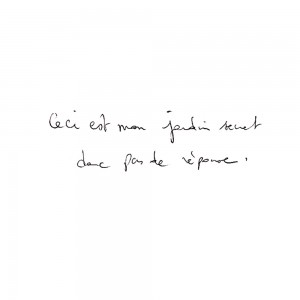 Ceci est mon jardin secret
donc pas de réponse.